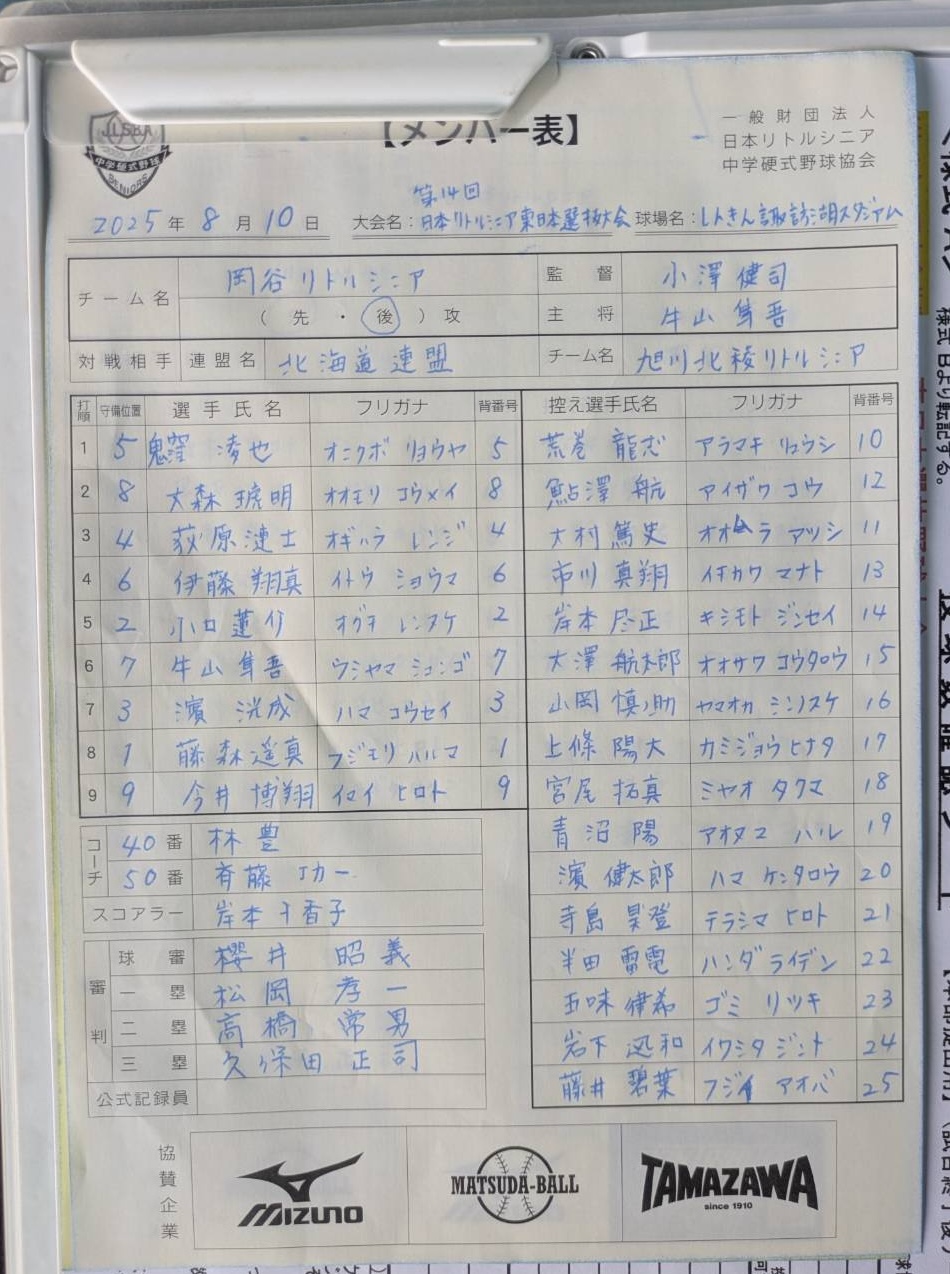 J.L.S.B.A
中学硬式野球
SENIORS
【メンバー表】
一般財団法人
日本リトルシニア
中学硬式野球協会
第14回
2025年 8月 10日 大会名：日本リトルシニア東日本選抜大会 球場名：しんきん諏訪湖スタジアム
チーム名 岡谷リトルシニア 監督 小澤健司
（先・後）攻 主将 牛山隼吾
対戦相手 連盟名 北海道連盟 チーム名 旭川北稜リトルシニア
打順 守備位置 選手氏名 フリガナ 背番号 控え選手氏名 フリガナ 背番号
1 5 鬼窪 凌也 オニクボ リョウヤ 5 荒巻 龍志 アラマキ リュウシ 10
2 8 大森 琥明 オオモリ コウメイ 8 鮎澤 航 アイザワ コウ 12
3 4 荻原 漣士 オギハラ レンジ 4 大村 篤史 オオムラ アツシ 11
4 6 伊藤 翔真 イトウ ショウマ 6 市川 真翔 イチカワ マナト 13
5 2 小口 蓮介 オグチ レンスケ 2 岸本 尽正 キシモト ジンセイ 14
6 7 牛山 隼吾 ウシヤマ シュンゴ 7 大澤 航太郎 オオサワ コウタロウ 15
7 3 濱 洸成 ハマ コウセイ 3 山岡 慎ノ助 ヤマオカ シンノスケ 16
8 1 藤森 遥真 フジモリ ハルマ 1 上條 陽大 カミジョウ ヒナタ 17
9 9 今井 博翔 イマイ ヒロト 9 宮尾 拓真 ミヤオ タクマ 18
青沼 陽 アオヌマ ハル 19
濱 健太郎 ハマ ケンタロウ 20
寺島 昊登 テラシマ ヒロト 21
半田 雷電 ハンダ ライデン 22
五味 律希 ゴミ リツキ 23
岩下 迅和 イワシタ ジント 24
藤井 碧葉 フジイ アオバ 25
コーチ 40番 林 豊
50番 斉藤 エカー
スコアラー 岸本 千香子
審判 球審 櫻井 昭義
一塁 松岡 孝一
二塁 高橋 常男
三塁 久保田 正司
公式記録員
協賛企業
MIZUNO
MATSUDA-BALL
TAMAZAWA
since 1910
様式Bより転記する。